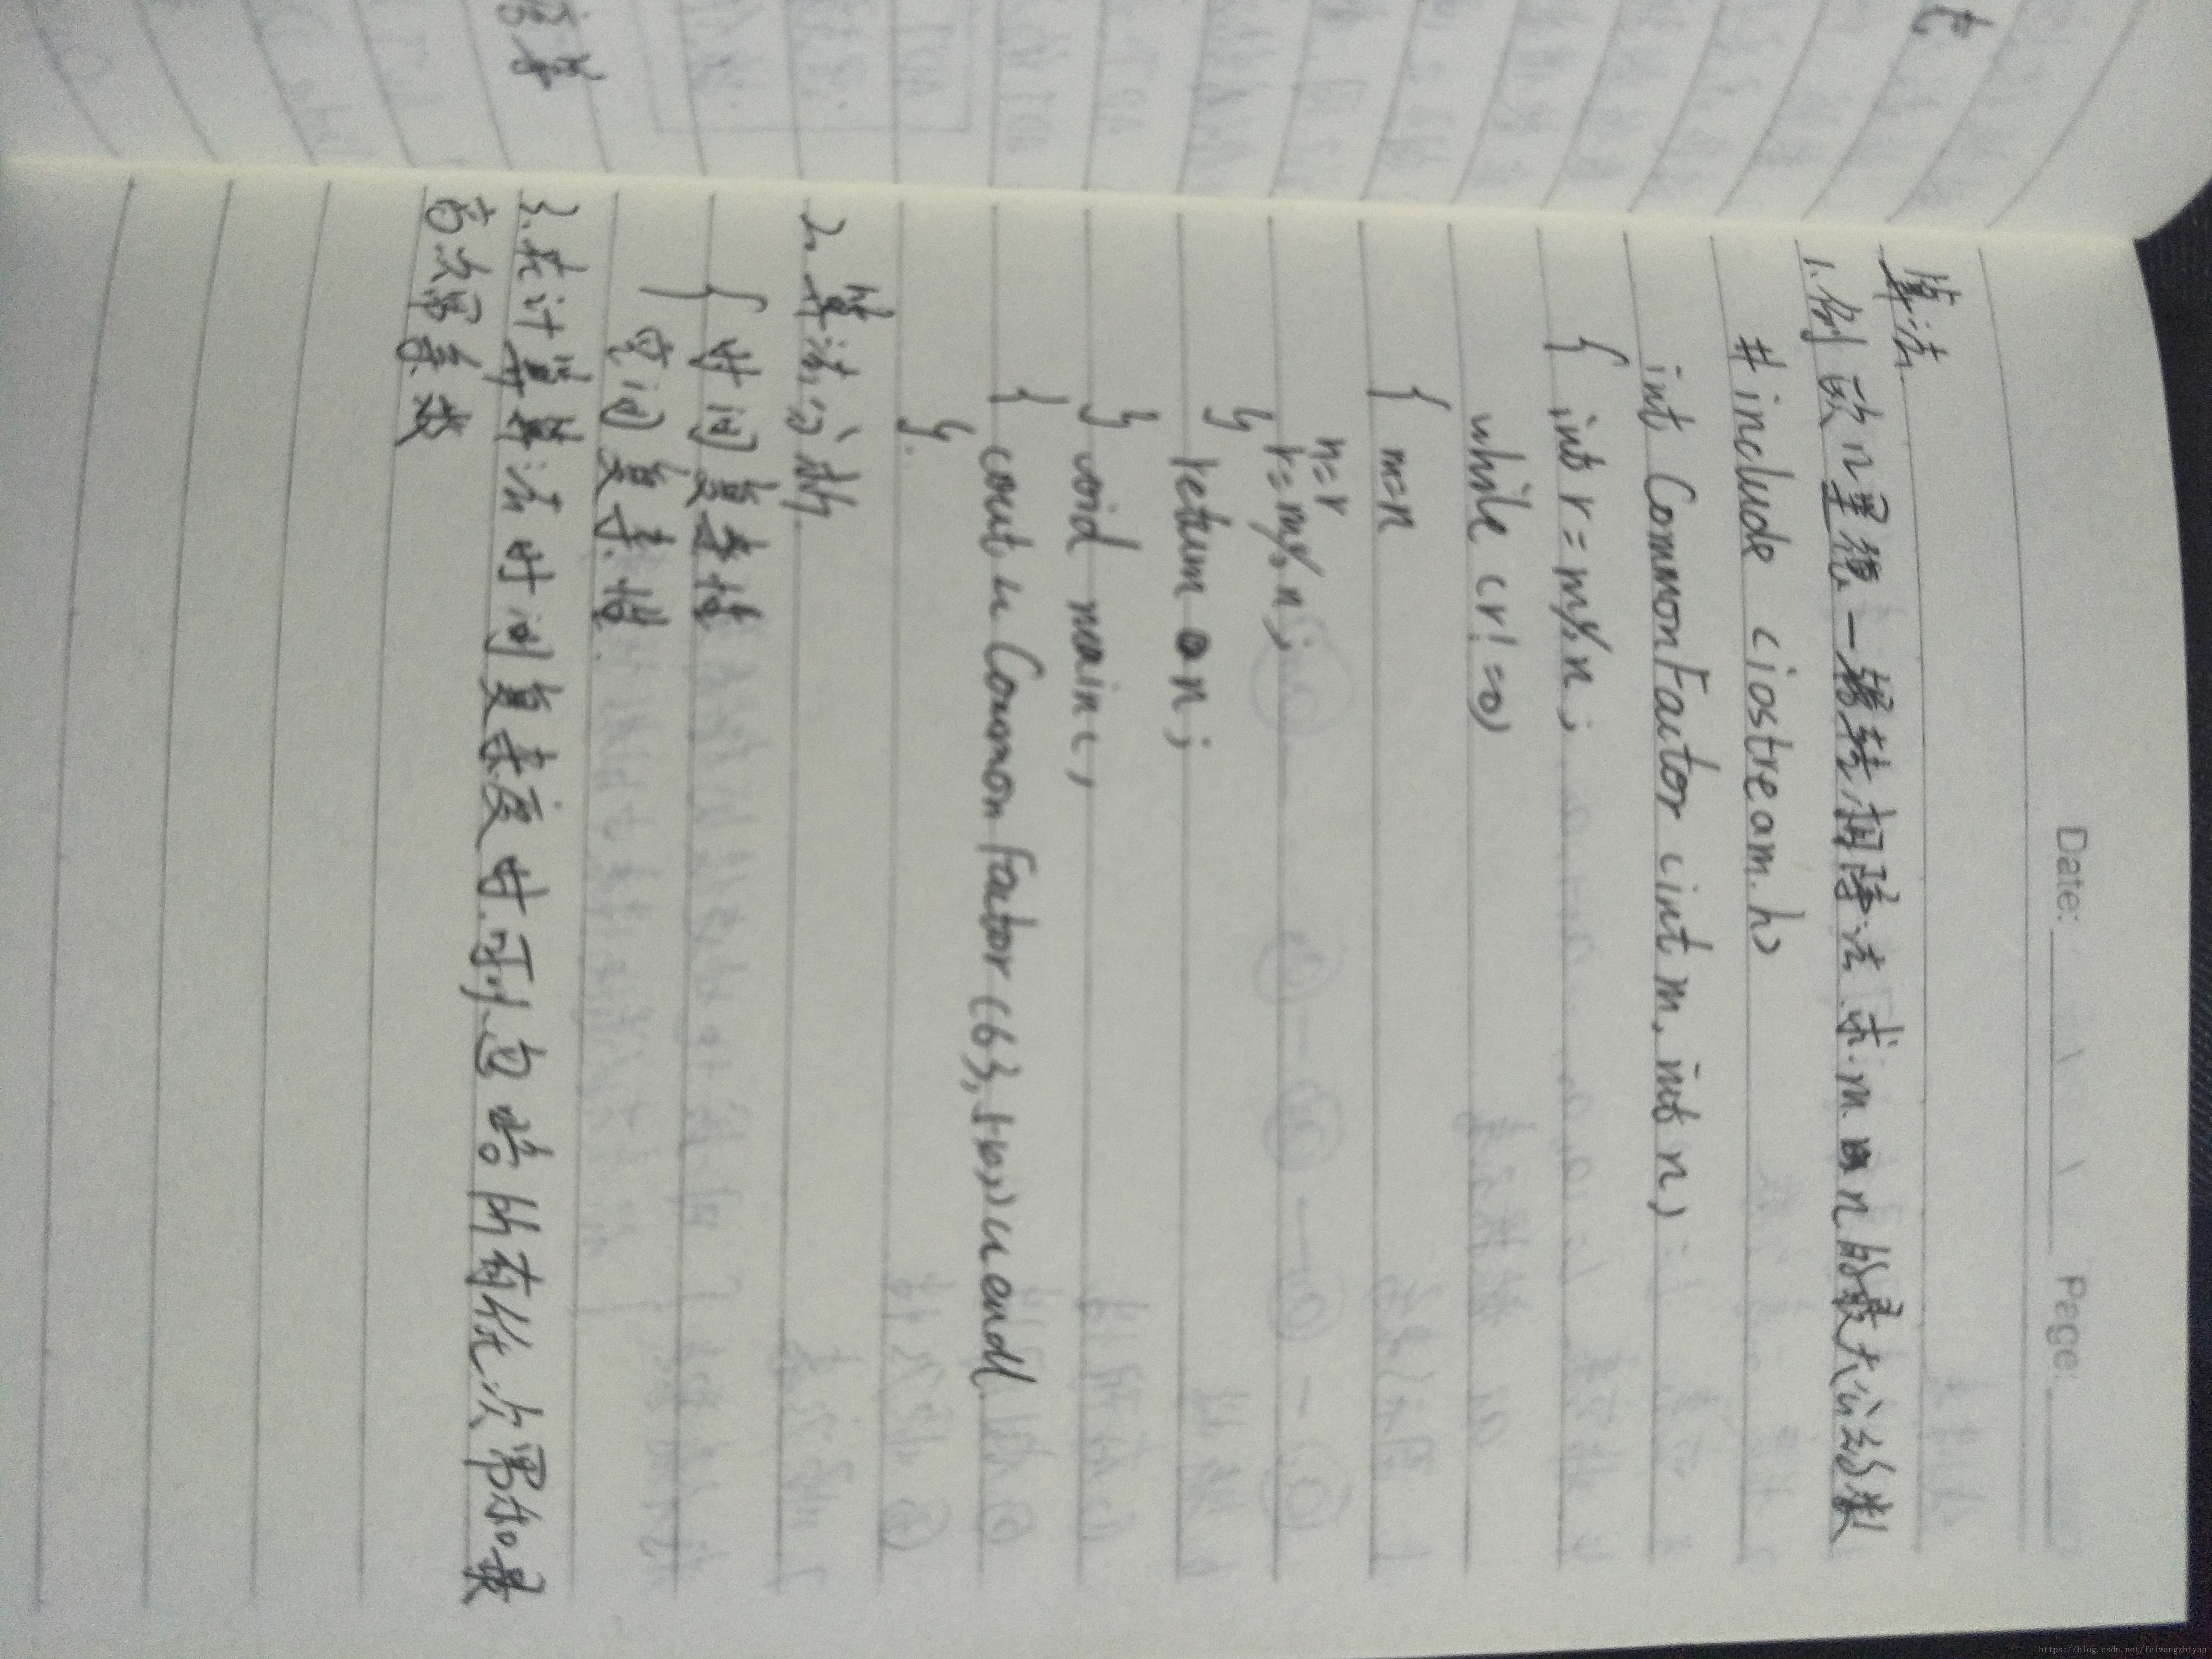 Date: Page:
算法
1.例 欧几里德—辗转相除法求m n的最大公约数
# include <iostream.h>
int CommonFactor (int m, int n)
{ int r = m% n ;
while (r! =0)
{ m=n
n=r
r= m% n ;
}
return n ;
} void main ( )
{ cout << Common Factor (63, ) << endl
}.
2. 算法分析
{ 时间复杂性
空间复杂性.
3.在计算算法时间复杂度时.可以忽略所有低次幂和最
高次幂系数
https://blog.csdn.net/feiwangzhiyan